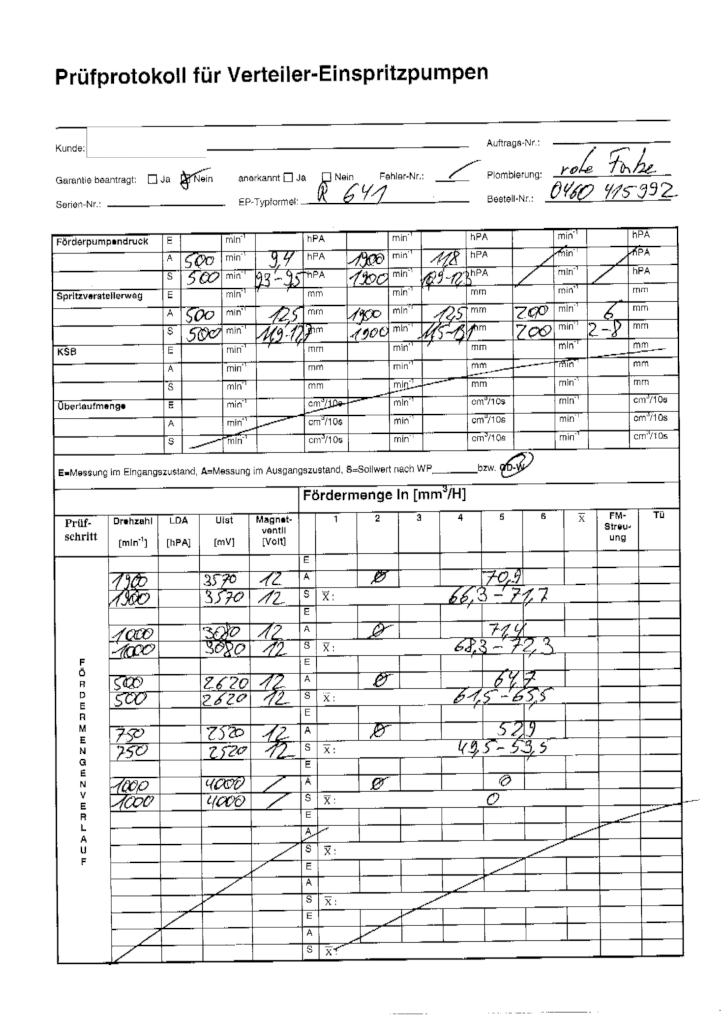 Prüfprotokoll für Verteiler-Einspritzpumpen
Kunde: Auftrags-Nr.:
Garantie beantragt: Ja Nein anerkannt Ja Nein Fehler-Nr.: Plombierung: rote Farbe
Serien-Nr.: EP-Typformel: R 641 Bestell-Nr.: 0460 415 992
Förderpumpendruck E min⁻¹ hPA min⁻¹ hPA min⁻¹ hPA
A 500 min⁻¹ 9,4 hPA 1900 min⁻¹ 11,8 hPA min⁻¹ hPA
S 500 min⁻¹ 9,3-9,5 hPA 1900 min⁻¹ hPA min⁻¹ hPA
Spritzverstellerweg E min⁻¹ mm min⁻¹ mm min⁻¹ mm
A 500 min⁻¹ 12,5 mm 1900 min⁻¹ 12,5 mm 200 min⁻¹ 6 mm
S 500 min⁻¹ mm 1900 min⁻¹ mm 200 min⁻¹ 2-8 mm
KSB E min⁻¹ mm min⁻¹ mm min⁻¹ mm
A min⁻¹ mm min⁻¹ mm min⁻¹ mm
S min⁻¹ mm min⁻¹ mm min⁻¹ mm
Überlaufmenge E min⁻¹ cm³/10s min⁻¹ cm³/10s min⁻¹ cm³/10s
A min⁻¹ cm³/10s min⁻¹ cm³/10s min⁻¹ cm³/10s
S min⁻¹ cm³/10s min⁻¹ cm³/10s min⁻¹ cm³/10s
E=Messung im Eingangszustand, A=Messung im Ausgangszustand, S=Sollwert nach WP bzw. CD-W
Fördermenge in [mm³/H]
Prüf- Drehzahl LDA UIst Magnet- 1 2 3 4 5 6 X̅ FM- Tü
schritt ventil Streu-
[min⁻¹] [hPA] [mV] [Volt] ung
FÖRDERMENGENVERLAUF
E
1900 3570 12 A Ø 70,9
1900 3570 12 S X̅: 66,3-71,7
E
1000 3080 12 A Ø 71,4
1000 3080 12 S X̅: 68,3-72,3
E
500 2620 12 A Ø 64,7
500 2620 12 S X̅: 61,5-65,5
E
750 2520 12 A Ø 52,9
750 2520 12 S X̅: 49,5-53,5
E
1000 4000 A Ø 0
1000 4000 S X̅: 0
E
A
S X̅:
E
A
S X̅:
E
A
S X̅: